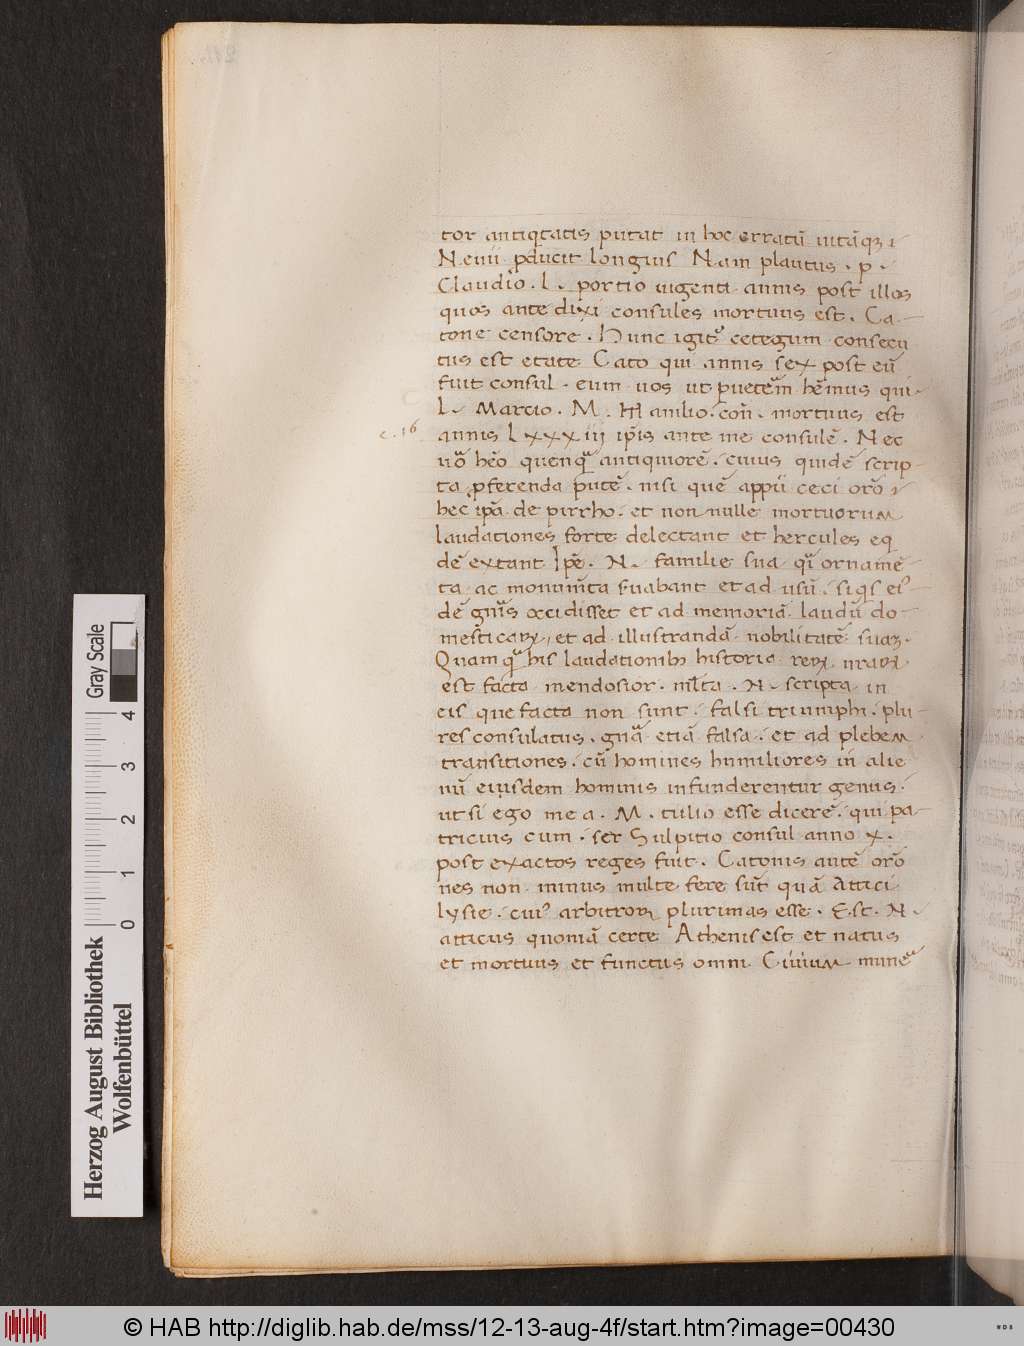 tor antiq̄tatis putat in hoc erratū uitāqȝ ·
Neuii pducit longius Nam plautus · p ·
Claudio · L · portio uigenti annis post illos
quos ante dixi consules mortuus est . Ca-
tone censore . Hunc igit᷑ cetegum consecu
tus est etate Cato qui annis sex post eū
fuit consul . eum uos ut puetēm hēmus qui ·
L · Marcio . M . Manilio . coñ . mortuus est
c. 16
annis Lxxxiij ip̄is ante me consulē . Nec
uō hēo quenq̄ antiquiorē . cuius quidē scrip-
ta pferenda putē . nisi quē appii ceci orō ·
hec ip̄a de pirrho . et non nulle mortuorum
laudationes forte delectant et hercules eq
dē extant Ip̄e . N . familie sua q̄i ornamē-
ta ac monumta seruabant et ad usū . siq̄s ei᾿
dē gn̄is occidisset et ad memoriā laudū do-
mesticaꝝ , et ad illustrandā nobilitatē suaȝ .
Quam q̄ his laudationibȝ historia reꝝ nraꝝ
est facta mendosior . ml̄ta . N · scripta in
eis que facta non sunt . falsi triumphi . plu-
res consulatus . gn̄a etiā falsa . et ad plebem
transitiones . cū homines humiliores in alie
nū eiusdem hominis infunderentur genus .
ut si ego me a . M . tulio esse dicerē . qui pa-
tricius cum · ser Sulpitio consul anno x .
post exactos reges fuit . Catonis autē orō
nes non minus multe fere sūt quā Attici
lysie . cui᾿ arbitror plurimas esse . Est . N ·
atticus quoniā certe Athenis est et natus
et mortuus et functus omni Ciuium mune
© HAB http://diglib.hab.de/mss/12-13-aug-4f/start.htm?image=00430
Herzog August Bibliothek
Wolfenbüttel
Gray Scale
0 1 2 3 4